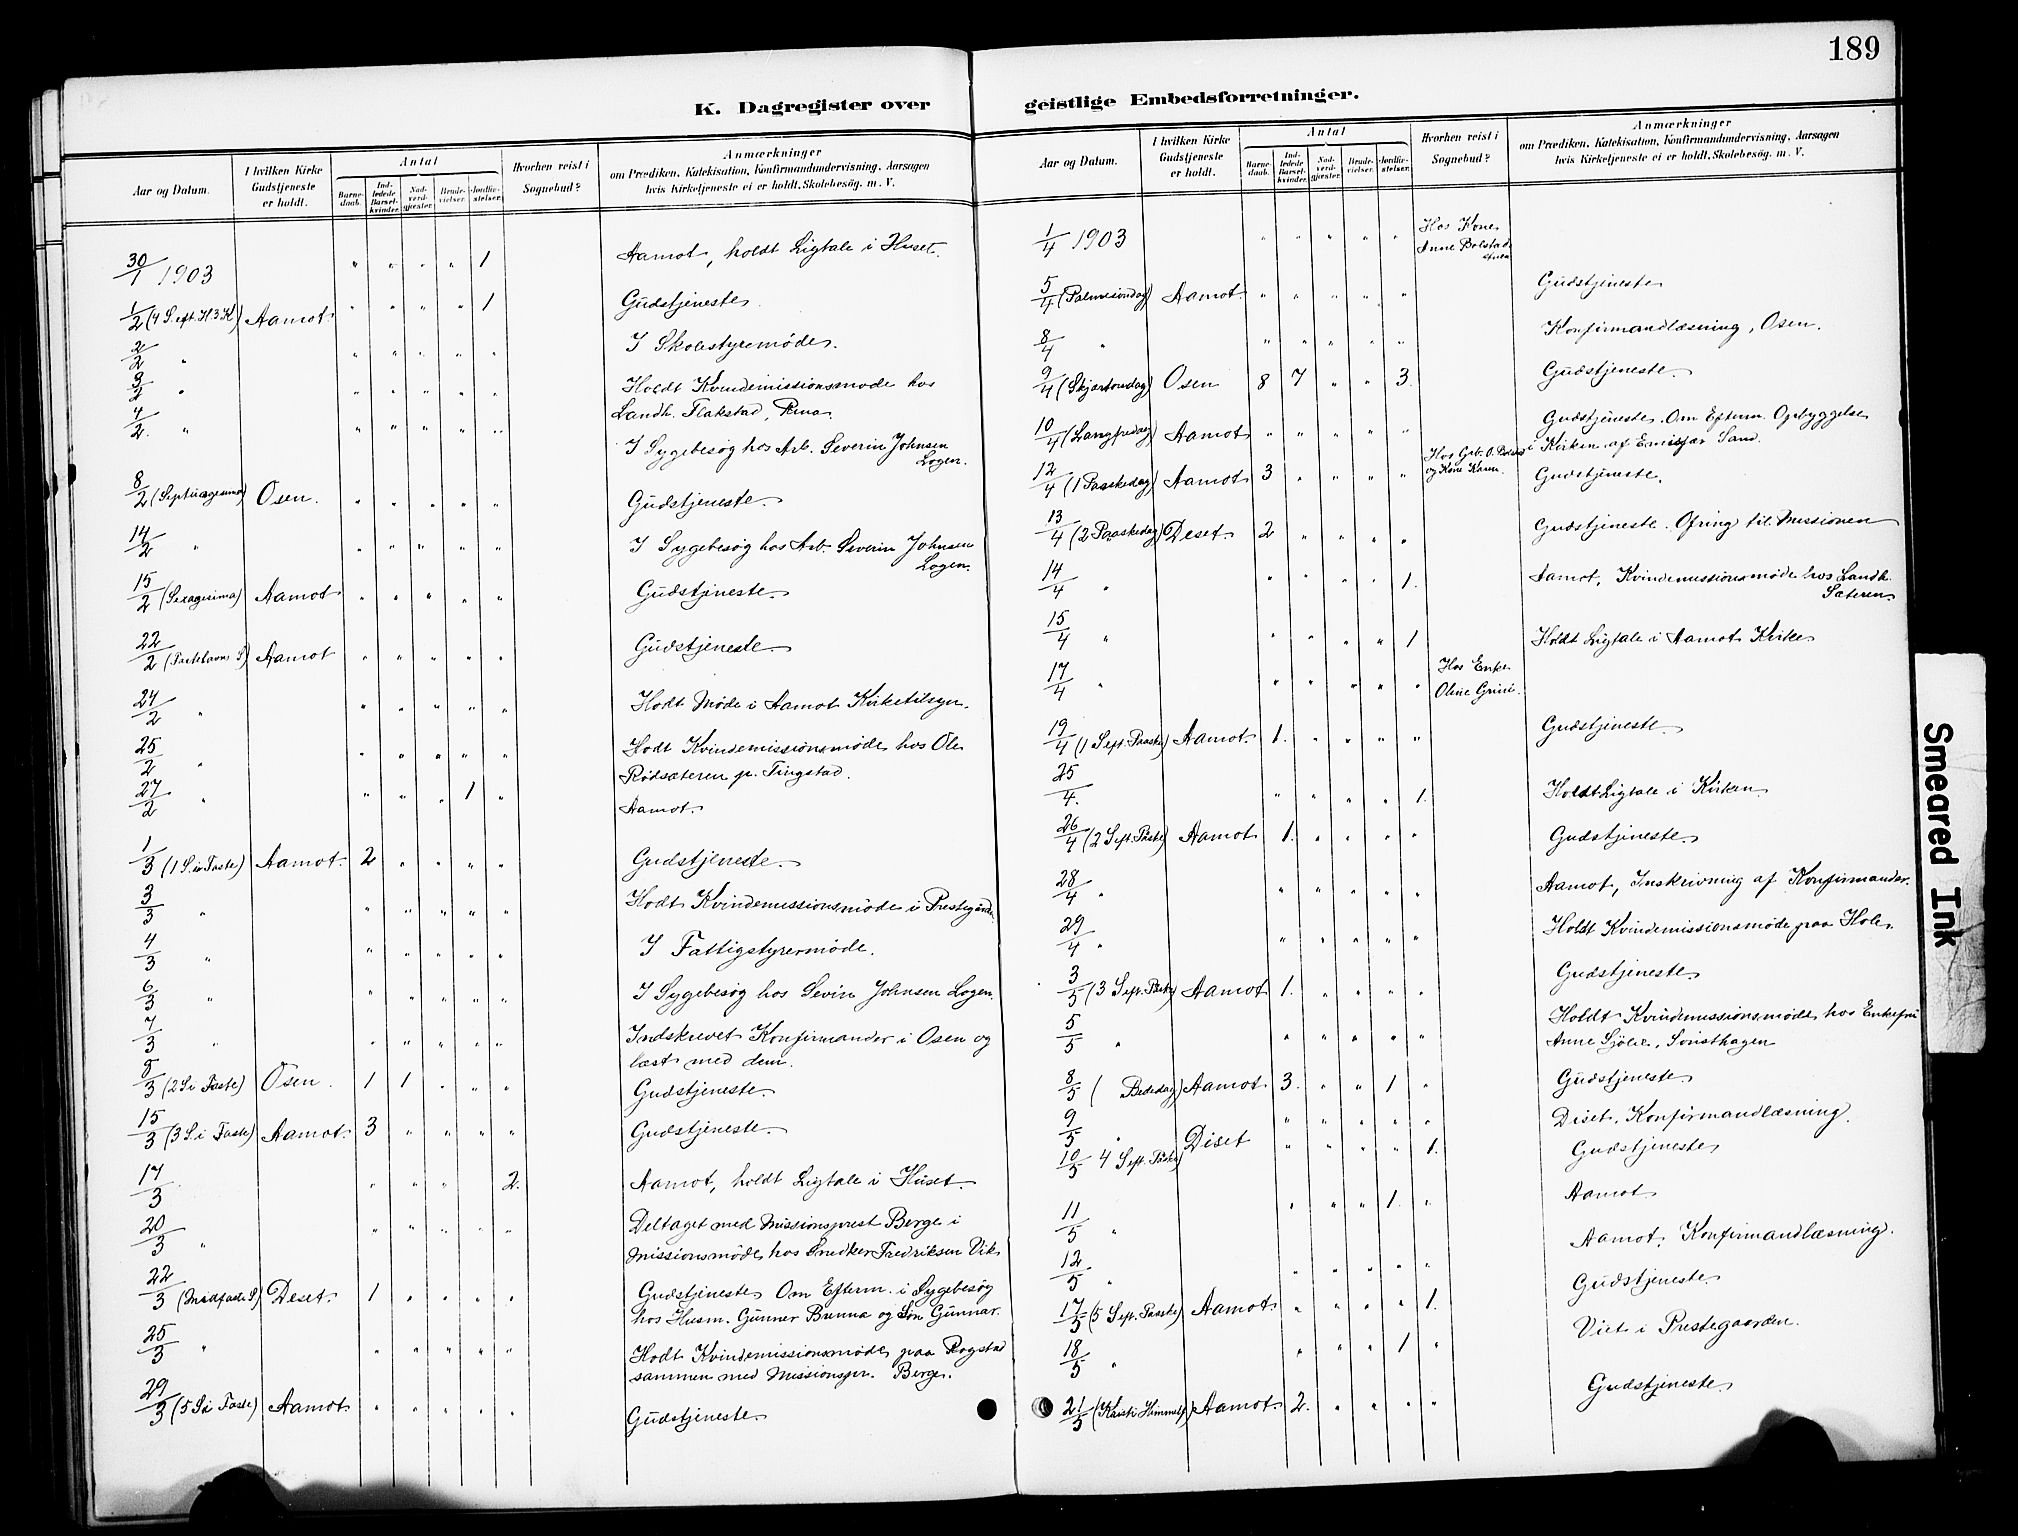 189
K. Dagregister over
Aar og Datum.
I hvilken Kirke Gudstjeneste er holdt.
Antal
Barnedaab.
Indledede Barselkvinder.
Nadverdgjester.
Brudevielser.
Jordfæstelser.
Hvorhen reist i Sognebud?
Anmærkninger
om Prædiken, Katekisation, Konfirmandundervisning, Aarsagen hvis Kirketjeneste ei er holdt, Skolebesög. m. V.
30/1 1903 " " " " 1 Aamot, holdt Ligtale i Huset.
1/2 (4 S. eft. H. 3 K.) Aamot. " " " " 1 Gudstjeneste.
2/2 " " " " " " I Skolestyremöde.
3/2 " " " " " " Holdt Kvindemissionsmøde hos
Landh. Flakstad, Rena.
4/2 " " " " " " I Sygebesøg hos Arb. Severin Johnsen
Logen.
8/2 (Septuagesima) Osen. " " " " " Gudstjeneste.
14/2 " " " " " " I Sygebesøg hos Arb. Severin Johnsen
Logen.
15/2 (Sexagesima) Aamot " " " " " Gudstjeneste.
22/2 (Fastelavns S) Aamot " " " " " Gudstjeneste
24/2 " " " " " " Hodt Møde i Aamot Kirketilsyn.
25/2 " " " " " " Hodt Kvindemissionsmøde hos Ole
Rödsæteren p. Tingstad.
27/2 " " " " 1 " Aamot.
1/3 (1 S. i Faste) Aamot. 2 " " " " Gudstjeneste.
3/3 " " " " " " Hodt Kvindemissionsmøde i Prestegården
4/3 " " " " " " I Fattigstyremöde.
6/3 " " " " " " I Sygebesøg hos Sevin Johnsen Logen.
7/3 " " " " " " Indskrevet Konfirmander i Osen og
læst med dem.
8/3 (2 S i Faste) Osen. 1 1 " " " Gudstjeneste.
15/3 (3 S. i Faste) Aamot. 3 " " " " Gudstjeneste.
17/3 " " " 2. Aamot, holdt Ligtale i Huset.
20/3 " " " " " " Deltaget med Missionsprest Berge i
Missionsmøde hos Snedker Fredriksen Vik.
22/3 (Midfaste S) Deset. 1 " " " " Gudstjeneste Om Efterm. i Sygebesøg
hos Husm. Gunner Brunna og Søn Gunnar.
25/3 " " " " " " Hodt Kvindemissionsmøde paa Rogstad
sammen med Missionspr. Berge.
29/3 (5 S i Faste) Aamot. " " " " " Gudstjeneste.
geistlige Embedsforretninger.
Aar og Datum.
I hvilken Kirke Gudstjeneste er holdt.
Antal
Barnedaab.
Indledede Barselkvinder.
Nadverdgjester.
Brudevielser.
Jordfæstelser.
Hvorhen reist i Sognebud?
Anmærkninger
om Prædiken, Katekisation, Konfirmandundervisning, Aarsagen hvis Kirketjeneste ei er holdt, Skolebesög. m. V.
1/4 1903 " " " " " Hos Kone
Anne Bolstad
5/4 (Palmesöndag) Aamot. " " " " " Gudstjeneste
8/4 " " " " " " Konfirmandlæsning, Osen.
9/4 (Skjærtorsdag) Osen 8 7 " " 3. Gudstjeneste.
10/4 (Langfredag) Aamot " " " " " Gudstjeneste. Om Efterm. Opbyggelse
i Kirken af Emissær Sand.
12/4 (1 Paaskedag) Aamot 3 " " " " Hos
og Kone Karen. Gudstjeneste.
13/4 (2 Paaskedag) Deset. 2 " " " " Gudstjeneste. Ofring til Missionen
14/4 " " " " " 1. Aamot, Kvindemissionsmøde hos Landh.
Sæteren.
15/4 " " " " " 1 Holdt Ligtale i Aamot Kirke
17/4 " " " " " " Hos Enke
Oline Grini.
19/4 (1 S eft. Paaske) Aamot. 1. " " " " Gudstjeneste.
25/4. " " " " 1. Holdt Ligtale i Kirken.
26/4 (2 S eft. Påske) Aamot 1. " " " " Gudstjeneste.
28/4 " " " " " " Aamot, Inskrivning af Konfirmander.
29/4 " " " " " " Holdt Kvindemissionsmøde paa Hole.
3/5 (3 S eft. Påske) Aamot 1. " " " " Gudstjeneste
5/5 " " " " " " Holdt Kvindemissionsmøde hos Enkefru
Anne Sjölie, Sorsthagen
8/5 ( Bededag) Aamot 3. " " 1 " Gudstjeneste
9/5 " " " " " " Diset. Konfirmandlæsning.
10/5 4 S eft. Påske Diset " " " " 1. Gudstjeneste
11/5 " " " " 1. " Aamot
12/5 " " " " " " Aamot. Konfirmandlæsning.
17/5 (5 S eft. Paaske) Aamot. " " " " 1. Gudstjeneste
18/5 " " " " 1 " Viet i Prestegaarden.
21/5 (Kristi Himmelf.) Aamot. 2. " " " " Gudstjeneste
Smeared Ink